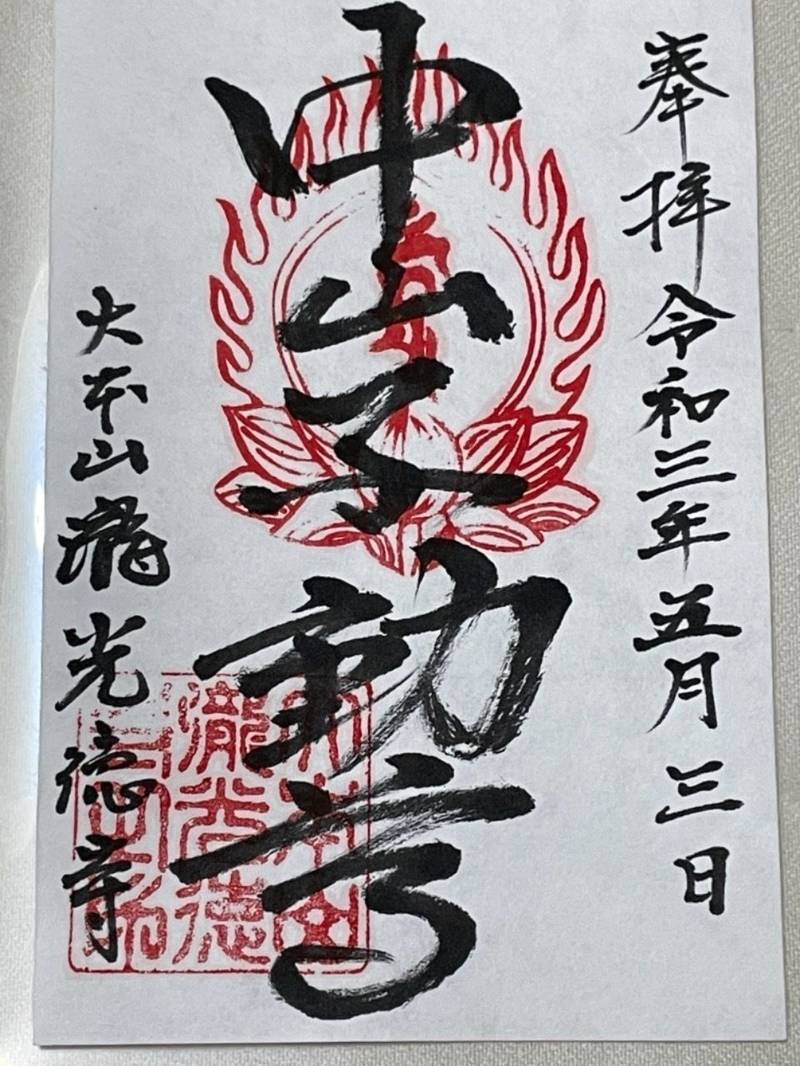 奉拝 令和三年五月三日
中山不動尊
大本山瀧光徳寺
大本山
瀧光徳